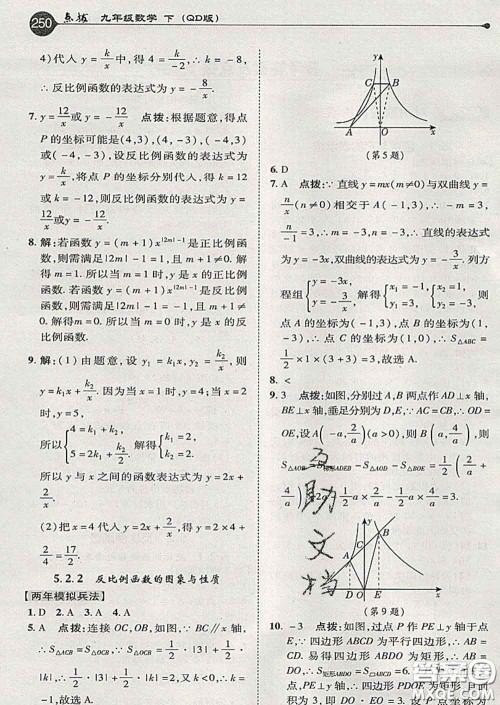 250 点拨 九年级数学 下(QD版)
4)代入 y = k/x 中,得 4 = k/-2,∴ k = -8.
∴ 反比例函数的表达式为 y = -8/x.
7. y = 12/x 或 y = -12/x 点拨:根据题意,得点
P 的坐标可能是(4,3),(4,-3),(-4,3)
或(-4,-3),设反比例函数的表达式为 y
= k/x,将点 P 的坐标分别代入,得 k = 12 或
k = -12,则反比例函数的表达式为 y = 12/x
或 y = -12/x.
8. 解:若函数 y = (m+1)x^|2m|-1 是正比例函
数,则需满足 |2m|-1 = 1,且 m+1≠0.解
得 m = 1. 即当 m = 1 时,此函数为正比例函
数.若函数 y = (m+1)x^|2m|-1 是反比例函
数,则需满足 |2m|-1 = -1,且 m+1≠
0. 解得 m = 0. 即当 m = 0 时,此函数为反
比例函数.
9. 解:(1)由题意,设 y₁ = k₁x,y₂ = k₂/x,则
y = k₁x + k₂/x.∵ 当 x = 1 时,y = 4;当 x = 2
时,y = 5,
所以 { 4 = k₁ + k₂, 5 = 2k₁ + k₂/2. 解得 { k₁ = 2, k₂ = 2.
所以 y 与 x 之间的函数表达式为 y = 2x +
2/x.
(2)把 x = 4 代入 y = 2x + 2/x,得 y = 2×4 +
2/4 = 17/2.
5.2.2 反比例函数的图象与性质
【两年模拟兵法】
1. D 2. C 3. A 4. A
5. A 点拨:连接 OC,OB,如图.∵ BC∥x 轴,
∴ S△ACB = S△OCB.而 S△OCB = 1/2·|3| + 1/2
·|k|,∴ 1/2·|3| + 1/2·|k| = 2.而 k<0,∴ k =
-1.故选 A.
y
C B
A O x
(第 5 题)
6. D
7. A 点拨:∵ 直线 y = mx(m≠0)与双曲线 y
= n/x(n≠0)相交于 A(-1,3),∴ -m = 3,
n/-1 = 3.∴ m = -3,n = -3.∴ 直线的表达式
为 y = -3x,双曲线的表达式为 y = -3/x.列方
程组 { y = -3x, y = -3/x. 解得 { x₁ = -1, y₁ = 3, { x₂ = 1, y₂ = -3. ∴
点 A 的坐标为(-1,3),点 B 的坐标为(1,
-3).∵ 点 C 的坐标为(1,0),∴ S△ABC =
1/2 × 1 × (3+3) = 3,故选 A.
8. <
9. 3 点拨:如图,分别过 A,B 两点作 AD⊥x 轴,
BE⊥x 轴,垂足分别为 D,E,∵ AC = CB,∴ OD =
OE,设 A(-a, 2/a)(a>0),则 B(a, 4/a),故
S△AOB = S梯形ADEB - S△AOD - S△BOE = 1/2(2/a +
4/a)·2a - 1/2a·2/a - 1/2a·4/a = 3.
互助文档
y
B
C
A
D O E x
(第 9 题)
10. -3 点拨:如图,作 PE⊥y 轴于点 E,
∵ 四边形 ABCD 为平行四边形,∴ AB =
CD.易得四边形 ABPE 为矩形,∴